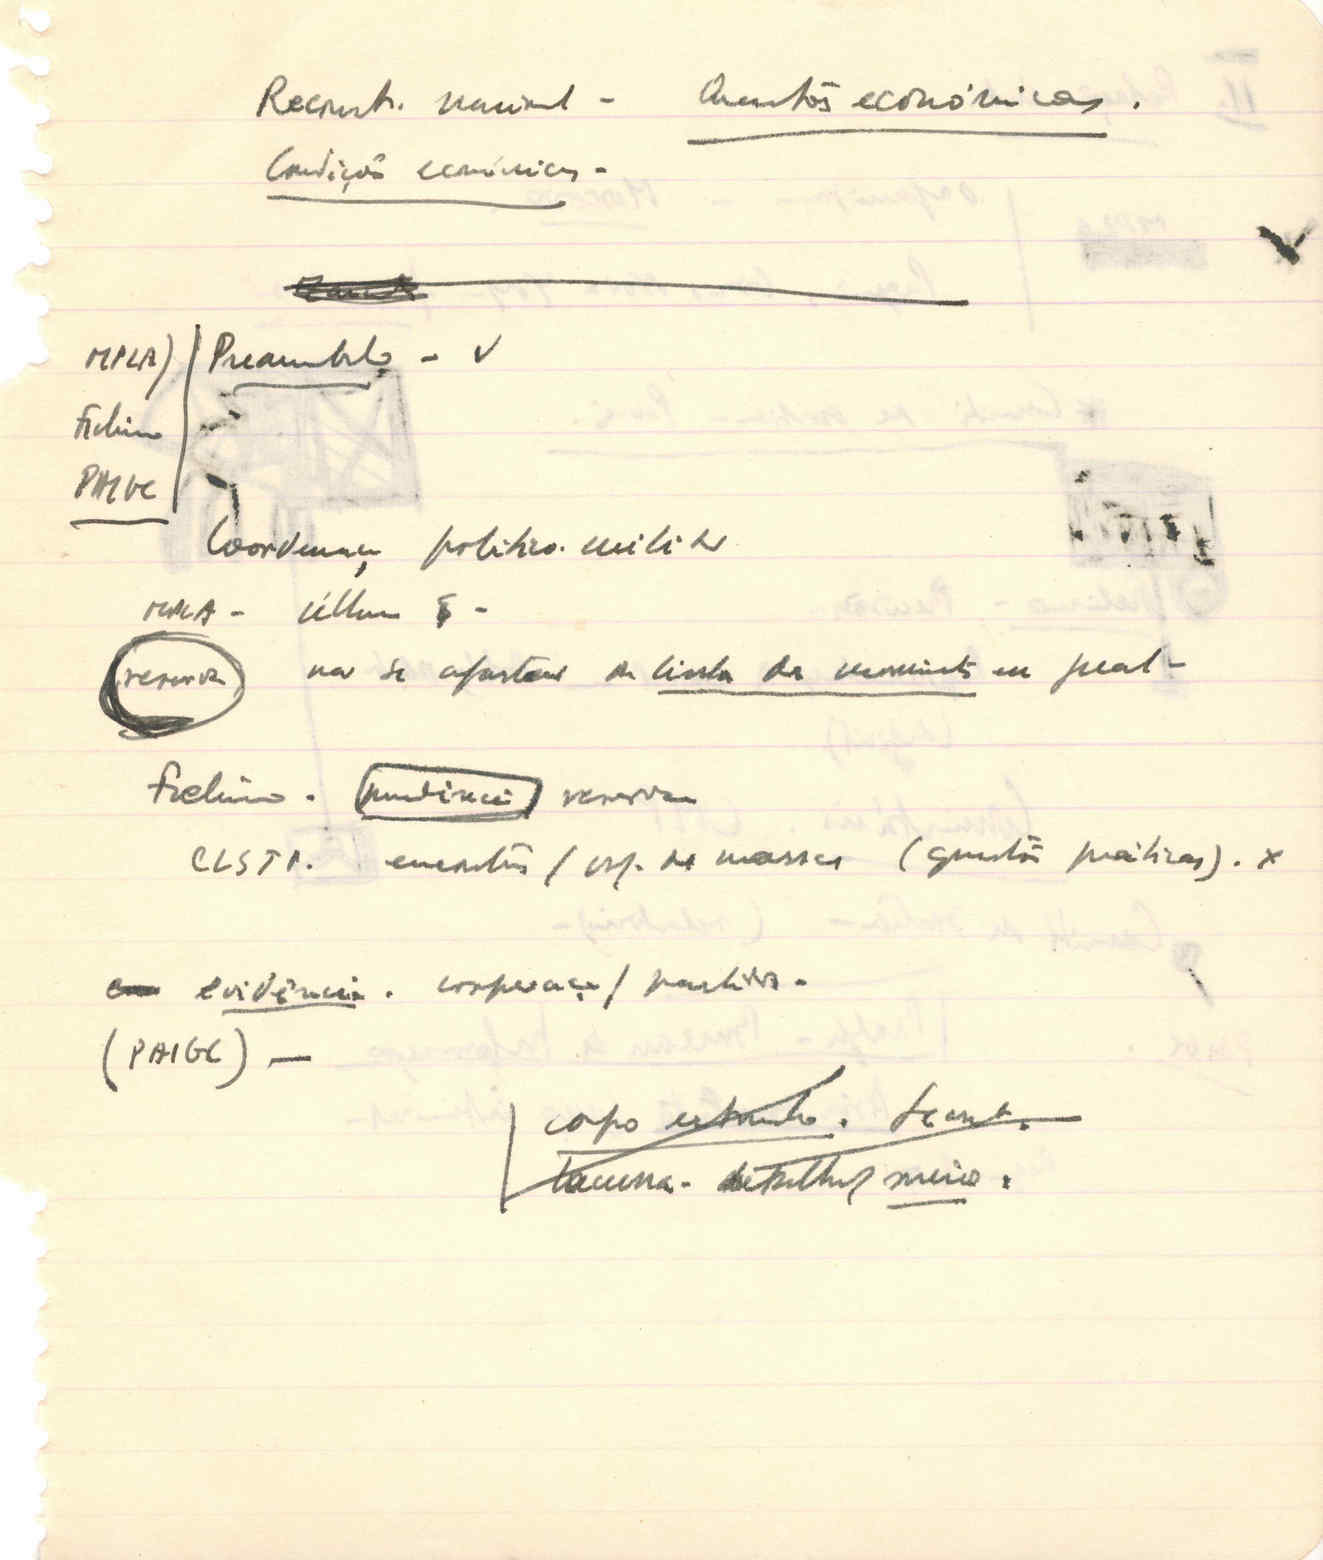 Reconst. nacional - Questões económicas.
Condições económicas -
MPLA) Preambulo - v
Frelimo
PAIGC
Coordenaç politico-militar
MPLA - última
reserva não se afastar da linha de
Frelimo. prudência reserva
CLSTP. / org. de massas (questões práticas). x
evidência. cooperaç / partidos -
(PAIGC) —
corpo estranho.
lacuna. detalhes / meio.